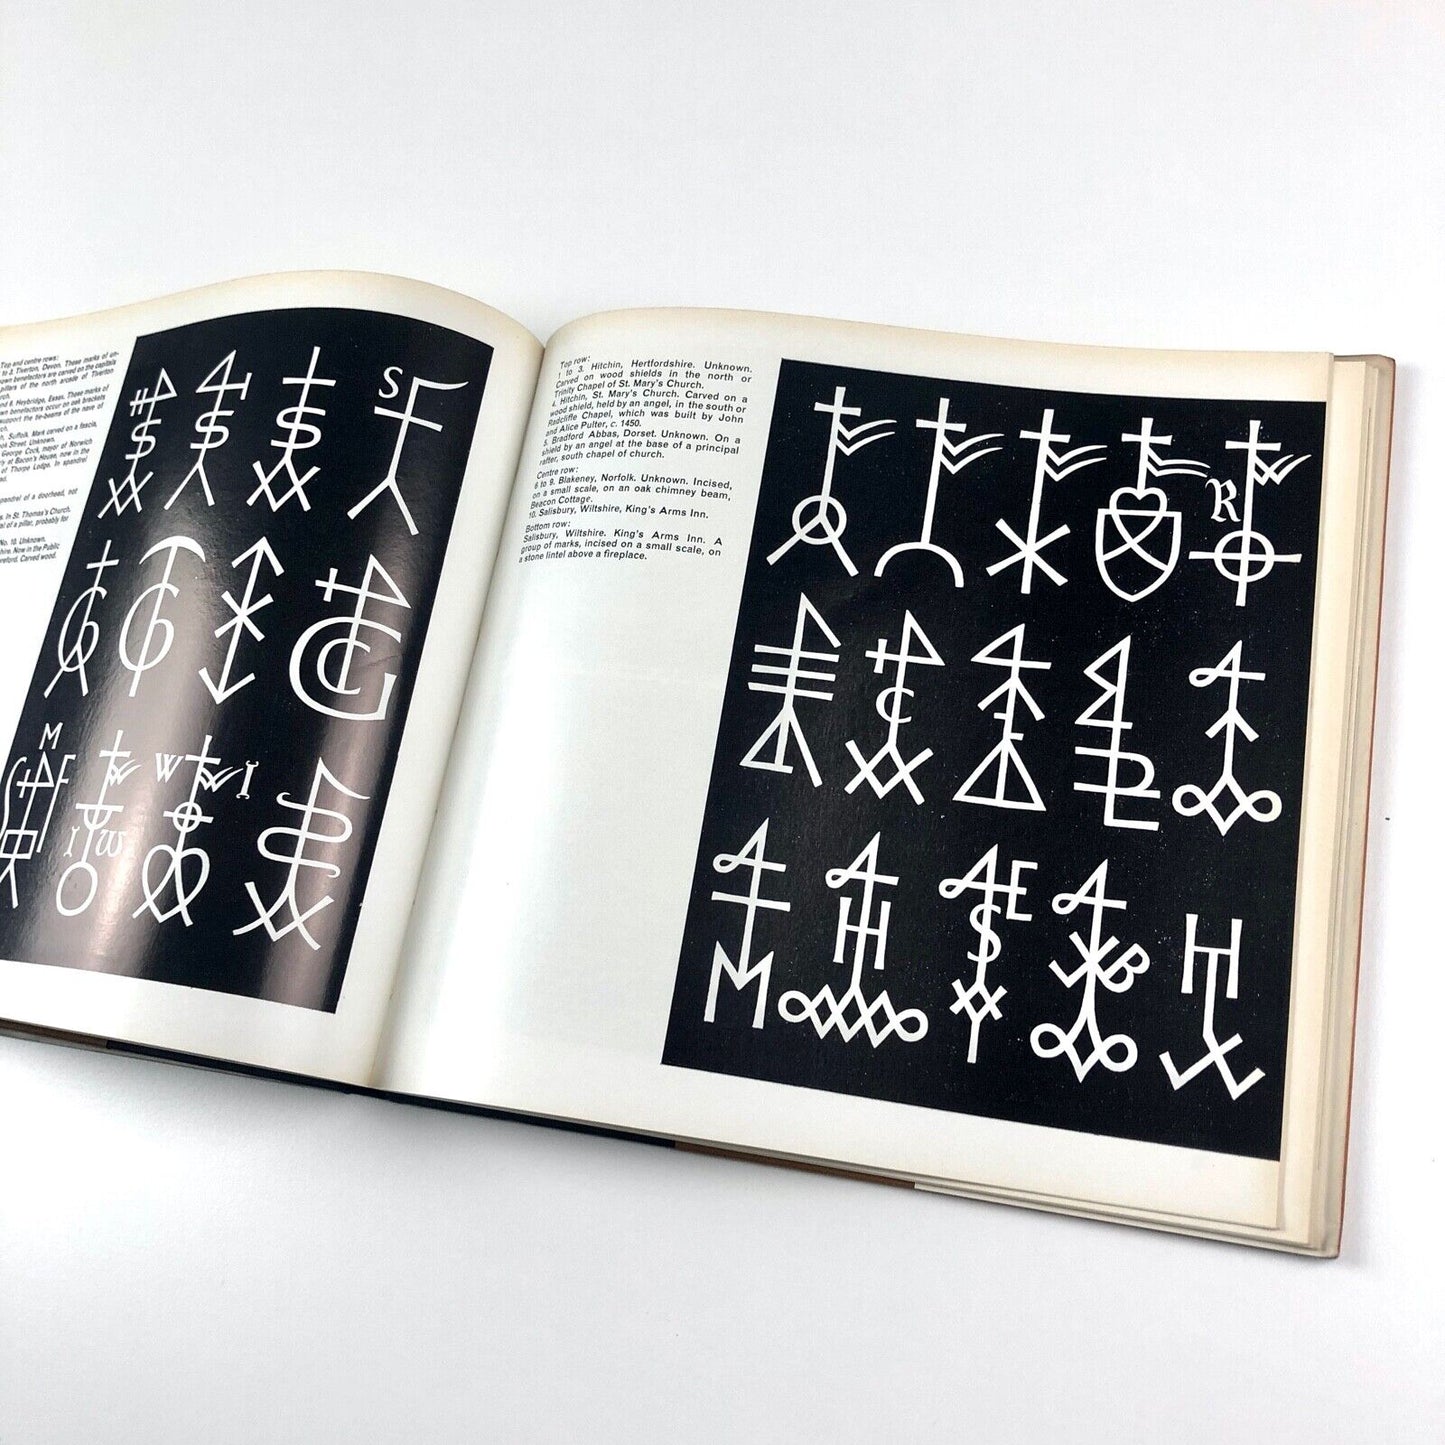 Top and centre rows:
to 3. Tiverton, Devon. These marks of un-
nown benefactors are carved on the capitals
pillars of the north arcade of Tiverton
rch.
and 6. Heybridge, Essex. These marks of
own benefactors occur on oak brackets
support the tie-beams of the nave of
rch.
h, Suffolk. Mark carved on a fascia,
ook Street. Unknown.
George Cock, mayor of Norwich
rly at Bacon's House, now in the
of Thorpe Lodge. In spandrel
ad.
spandrel of a doorhead, not
s. In St. Thomas's Church.
al of a pillar, probably for
No. 10. Unknown.
hire. Now in the Public
ereford. Carved wood.
S
S
S
S
G
C
M
S
F
W
I
I
W
Top row:
1 to 3. Hitchin, Hertfordshire. Unknown.
Carved on wood shields in the north or
Trinity Chapel of St. Mary's Church.
4. Hitchin, St. Mary's Church. Carved on a
wood shield, held by an angel, in the south or
Radcliffe Chapel, which was built by John
and Alice Pulter, c. 1450.
5. Bradford Abbas, Dorset. Unknown. On a
shield by an angel at the base of a principal
rafter, south chapel of church.
Centre row:
6 to 9. Blakeney, Norfolk. Unknown. Incised,
on a small scale, on an oak chimney beam,
Beacon Cottage.
10. Salisbury, Wiltshire, King's Arms Inn.
Bottom row:
Salisbury, Wiltshire. King's Arms Inn. A
group of marks, incised on a small scale, on
a stone lintel above a fireplace.
R
C
M
H
E
S
B
H